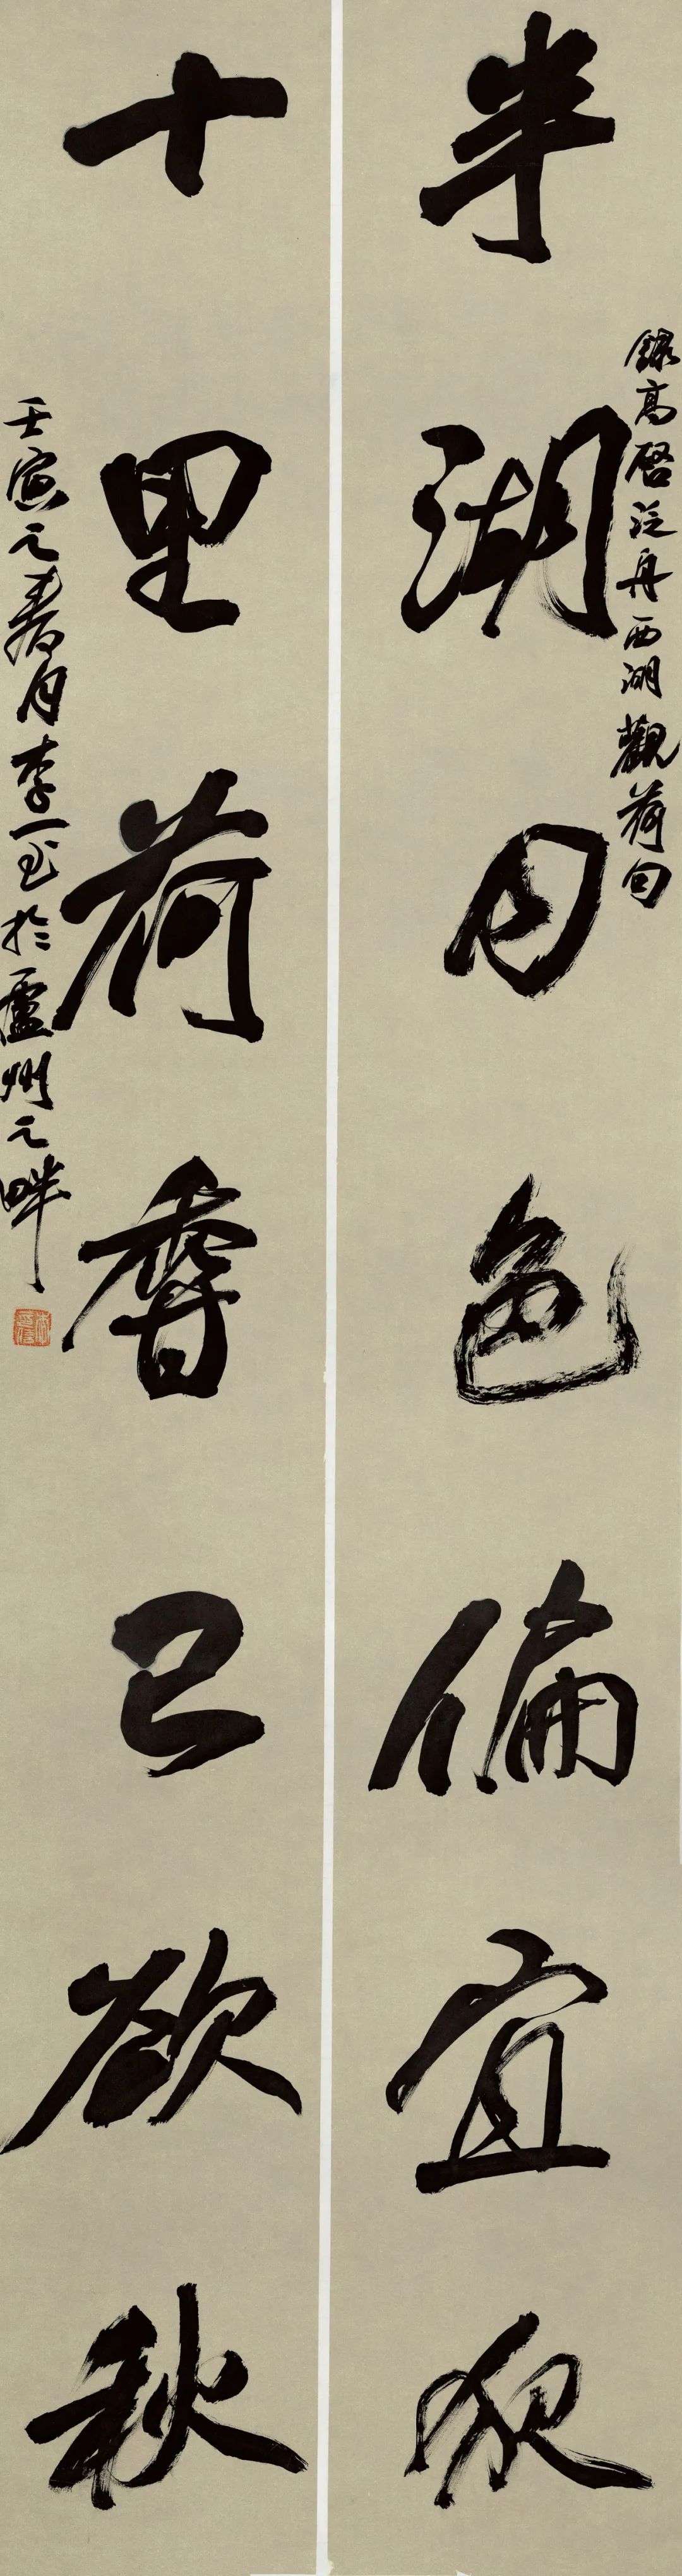 錄高啓泛舟西湖觀荷句
半湖月色偏宜夜
十里荷香已欲秋
壬寅之春月李一玉於廬州之畔